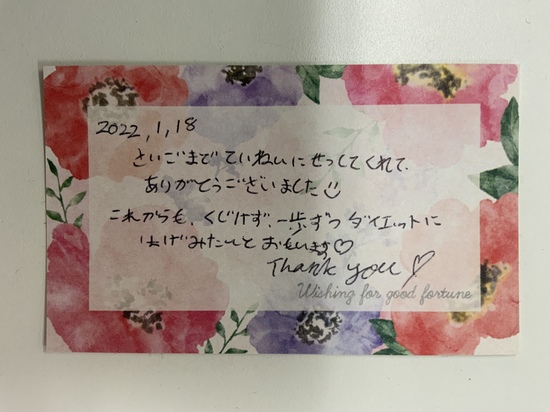 2022,1,18
さいごまでていねいにせっしてくれて、
ありがとうございました
これからも、くじけず、一歩ずつダイエットに
はげみたいとおもいます♡
Thank you♡
Wishing for good fortune